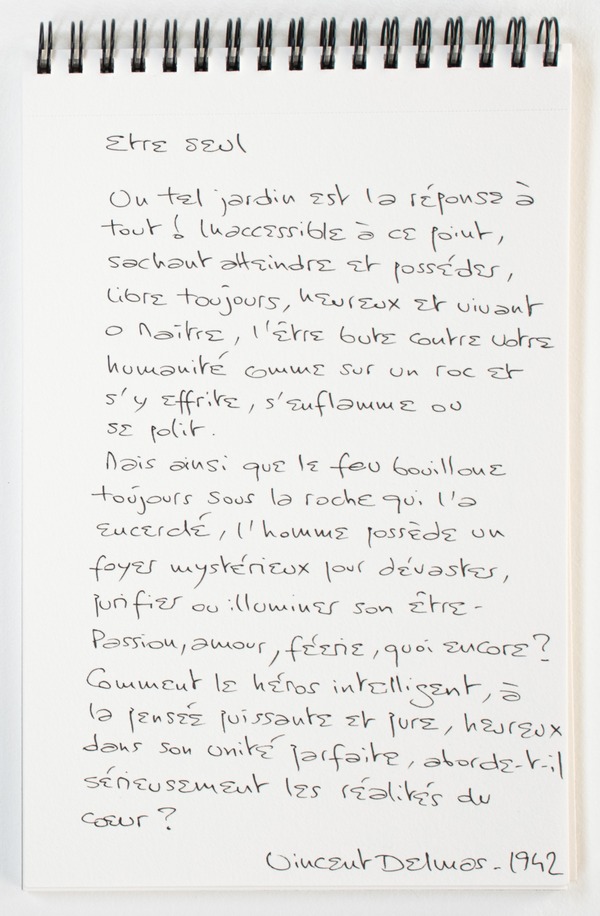 Etre seul
Un tel jardin est la réponse à
tout ! Inaccessible à ce point,
sachant atteindre et posséder,
libre toujours, heureux et vivant
o Maître, l'être bute contre votre
humanité comme sur un roc et
s'y effrite, s'enflamme ou
se polit.
Mais ainsi que le feu bouillone
toujours sous la roche qui l'a
encerclé, l'homme possède un
foyer mystérieux pour dévaster,
purifier ou illuminer son être -
Passion, amour, féérie, quoi encore ?
Comment le héros intelligent, à
la pensée puissante et pure, heureux
dans son unité parfaite, aborde-t-il
sérieusement les réalités du
cœur ?
Vincent Delmas - 1942